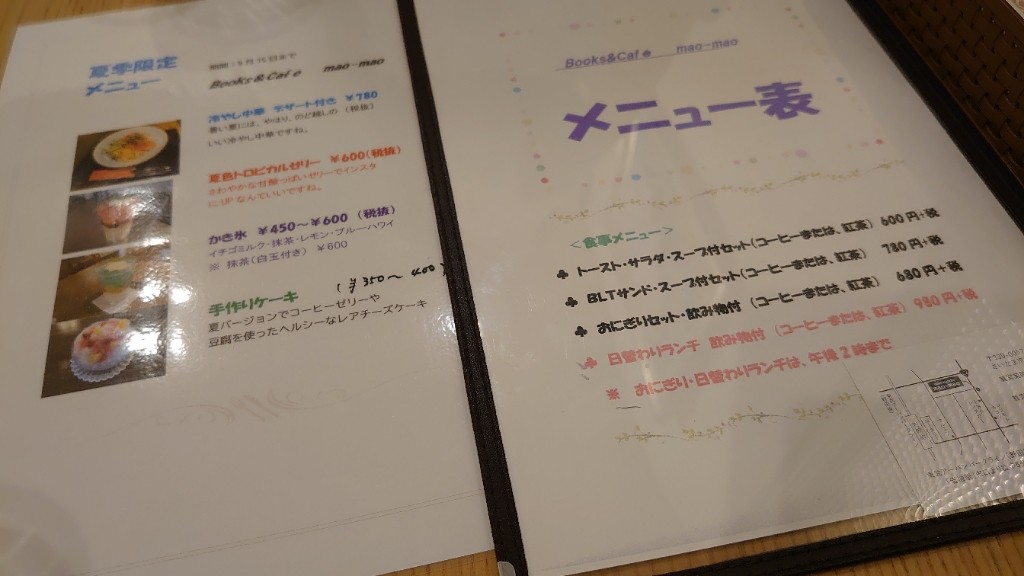 夏季限定
メニュー
期間:9月15日まで
Books&Cafe mao-mao
冷やし中華 デザート付き ¥780
暑い夏には、やはり、のど越しの (税抜)
いい冷やし中華ですね。
夏色トロピカルゼリー ¥600(税抜)
さわやかな甘酸っぱいゼリーでインスタ
にUPなんていいですね。
かき氷 ¥450~¥600 (税抜)
イチゴミルク・抹茶・レモン・ブルーハワイ
※ 抹茶(白玉付き) ¥600
(¥350~400)
手作りケーキ
夏バージョンでコーヒーゼリーや
豆腐を使ったヘルシーなレアチーズケーキ
Books&Cafe mao-mao
メニュー表
<食事メニュー>
♣ トースト・サラダ・スープ付セット(コーヒーまたは、紅茶) 600円+税
♣ BLTサンド・スープ付セット(コーヒーまたは、紅茶) 780円+税
♣ おにぎりセット・飲み物付 (コーヒーまたは、紅茶) 680円+税
♣ 日替わりランチ 飲み物付 (コーヒーまたは、紅茶) 980円+税
※ おにぎり・日替わりランチは、午後2時まで